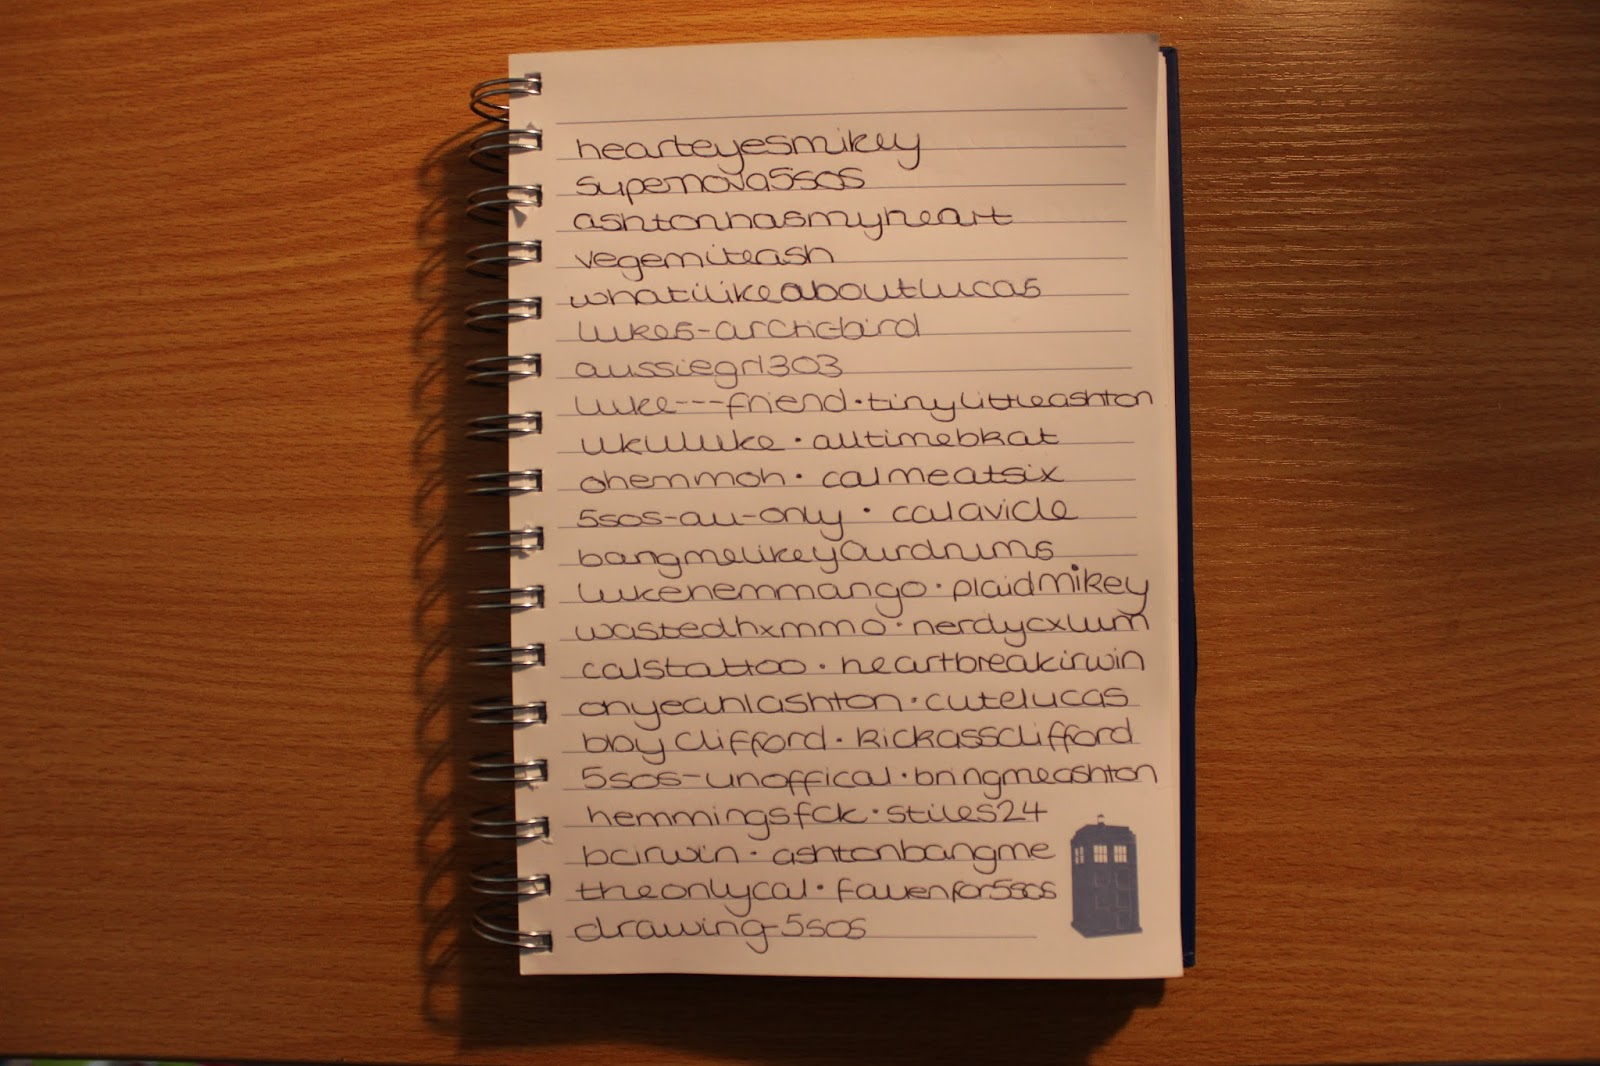 hearteyesmikey
supernova5sos
ashtonhasmyheart
vegemiteash
whatilikeaboutlucas
lukes-arctic-bird
aussiegrl303
luke---friend · tinylittleashton
ukuluke · alltimebkat
ohemmoh · calmeatsix
5sos-au-only · calavicle
bangmelikeyourdrums
lukehemmango · plaidmikey
wastedhxmmo · nerdycxlum
calstattoo · heartbreakirwin
ohyeahlashton · cutelucas
bby clifford · kickassclifford
5sos-unoffical · bringmeashton
hemmingsfck · stiles24
bcirwin · ashtonbangme
theonlycal · fallenfor5sos
drawing-5sos